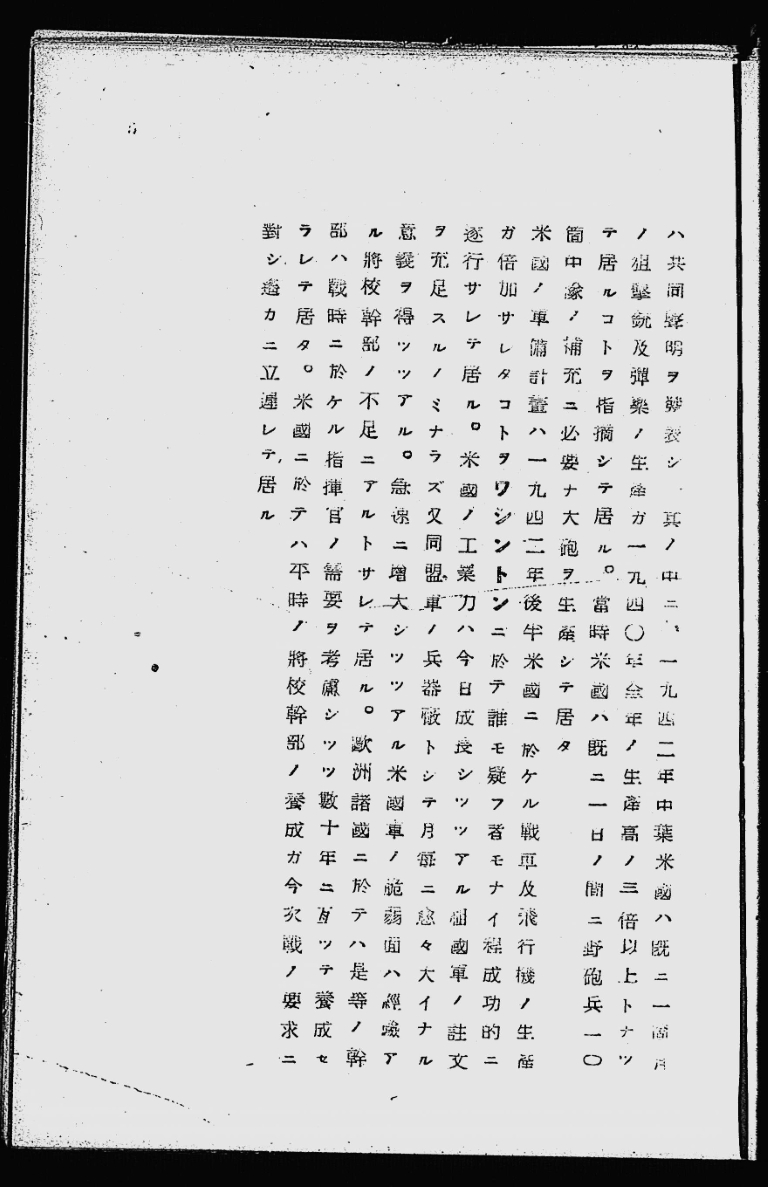 ハ共同聲明ヲ發表シ、其ノ中ニ、一九四二年中葉米國ハ既ニ一箇月
ノ狙擊銃及彈藥ノ生產ガ一九四〇年全年ノ生產高ノ三倍以上トナツ
テ居ルコトヲ指摘シテ居ル。當時米國ハ既ニ一日ノ間ニ野砲兵一〇
箇中隊ノ補充ニ必要ナ大砲ヲ生產シテ居タ
米國ノ軍備計畫ハ一九四二年後半米國ニ於ケル戰車及飛行機ノ生產
ガ倍加サレタコトヲワシントンニ於テ誰モ疑フ者モナイ程成功的ニ
逐行サレテ居ル。米國ノ工業力ハ今日成長シツツアル細國軍ノ註文
ヲ充足スルノミナラズ又同盟軍ノ兵器廠トシテ月每ニ愈々大イナル
意義ヲ得ツツアル。急速ニ增大シツツアル米國軍ノ脆弱面ハ經驗ア
ル將校幹部ノ不足ニアルトサレテ居ル。歐洲諸國ニ於テハ是等ノ幹
部ハ戰時ニ於ケル指揮官ノ需要ヲ考慮シツツ數十年ニ亙ツテ養成セ
ラレテ居タ。米國ニ於テハ平時ノ將校幹部ノ養成ガ今次戰ノ要求ニ
對シ遙カニ立遲レテ居ル